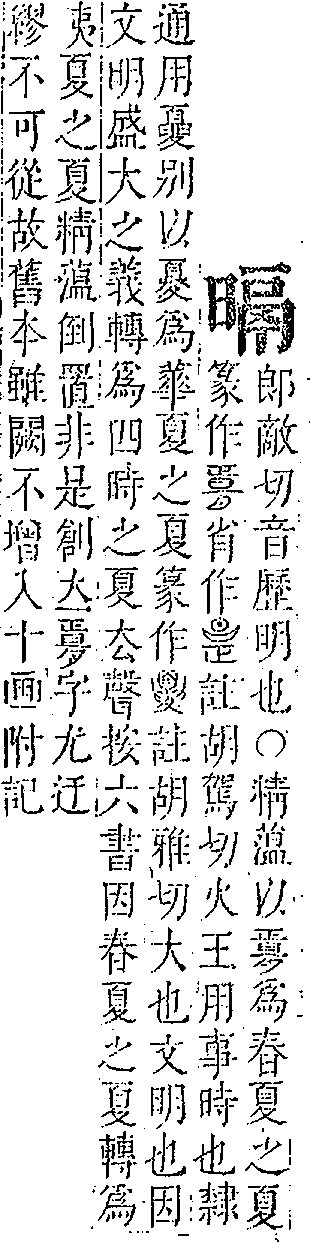 郎敵切音歷明也○精薀以爲春夏之夏
篆作省作昰註胡駕切火王用事時也隸
通用夓別以夓爲華夏之夏篆作註胡雅切大也文明也因
文明盛大之義轉爲四時之夏去聲按六書因春夏之夏轉爲
夷夏之夏精薀倒置非是創立字尤迂
繆不可從故舊本雖闕不增入十畫附記